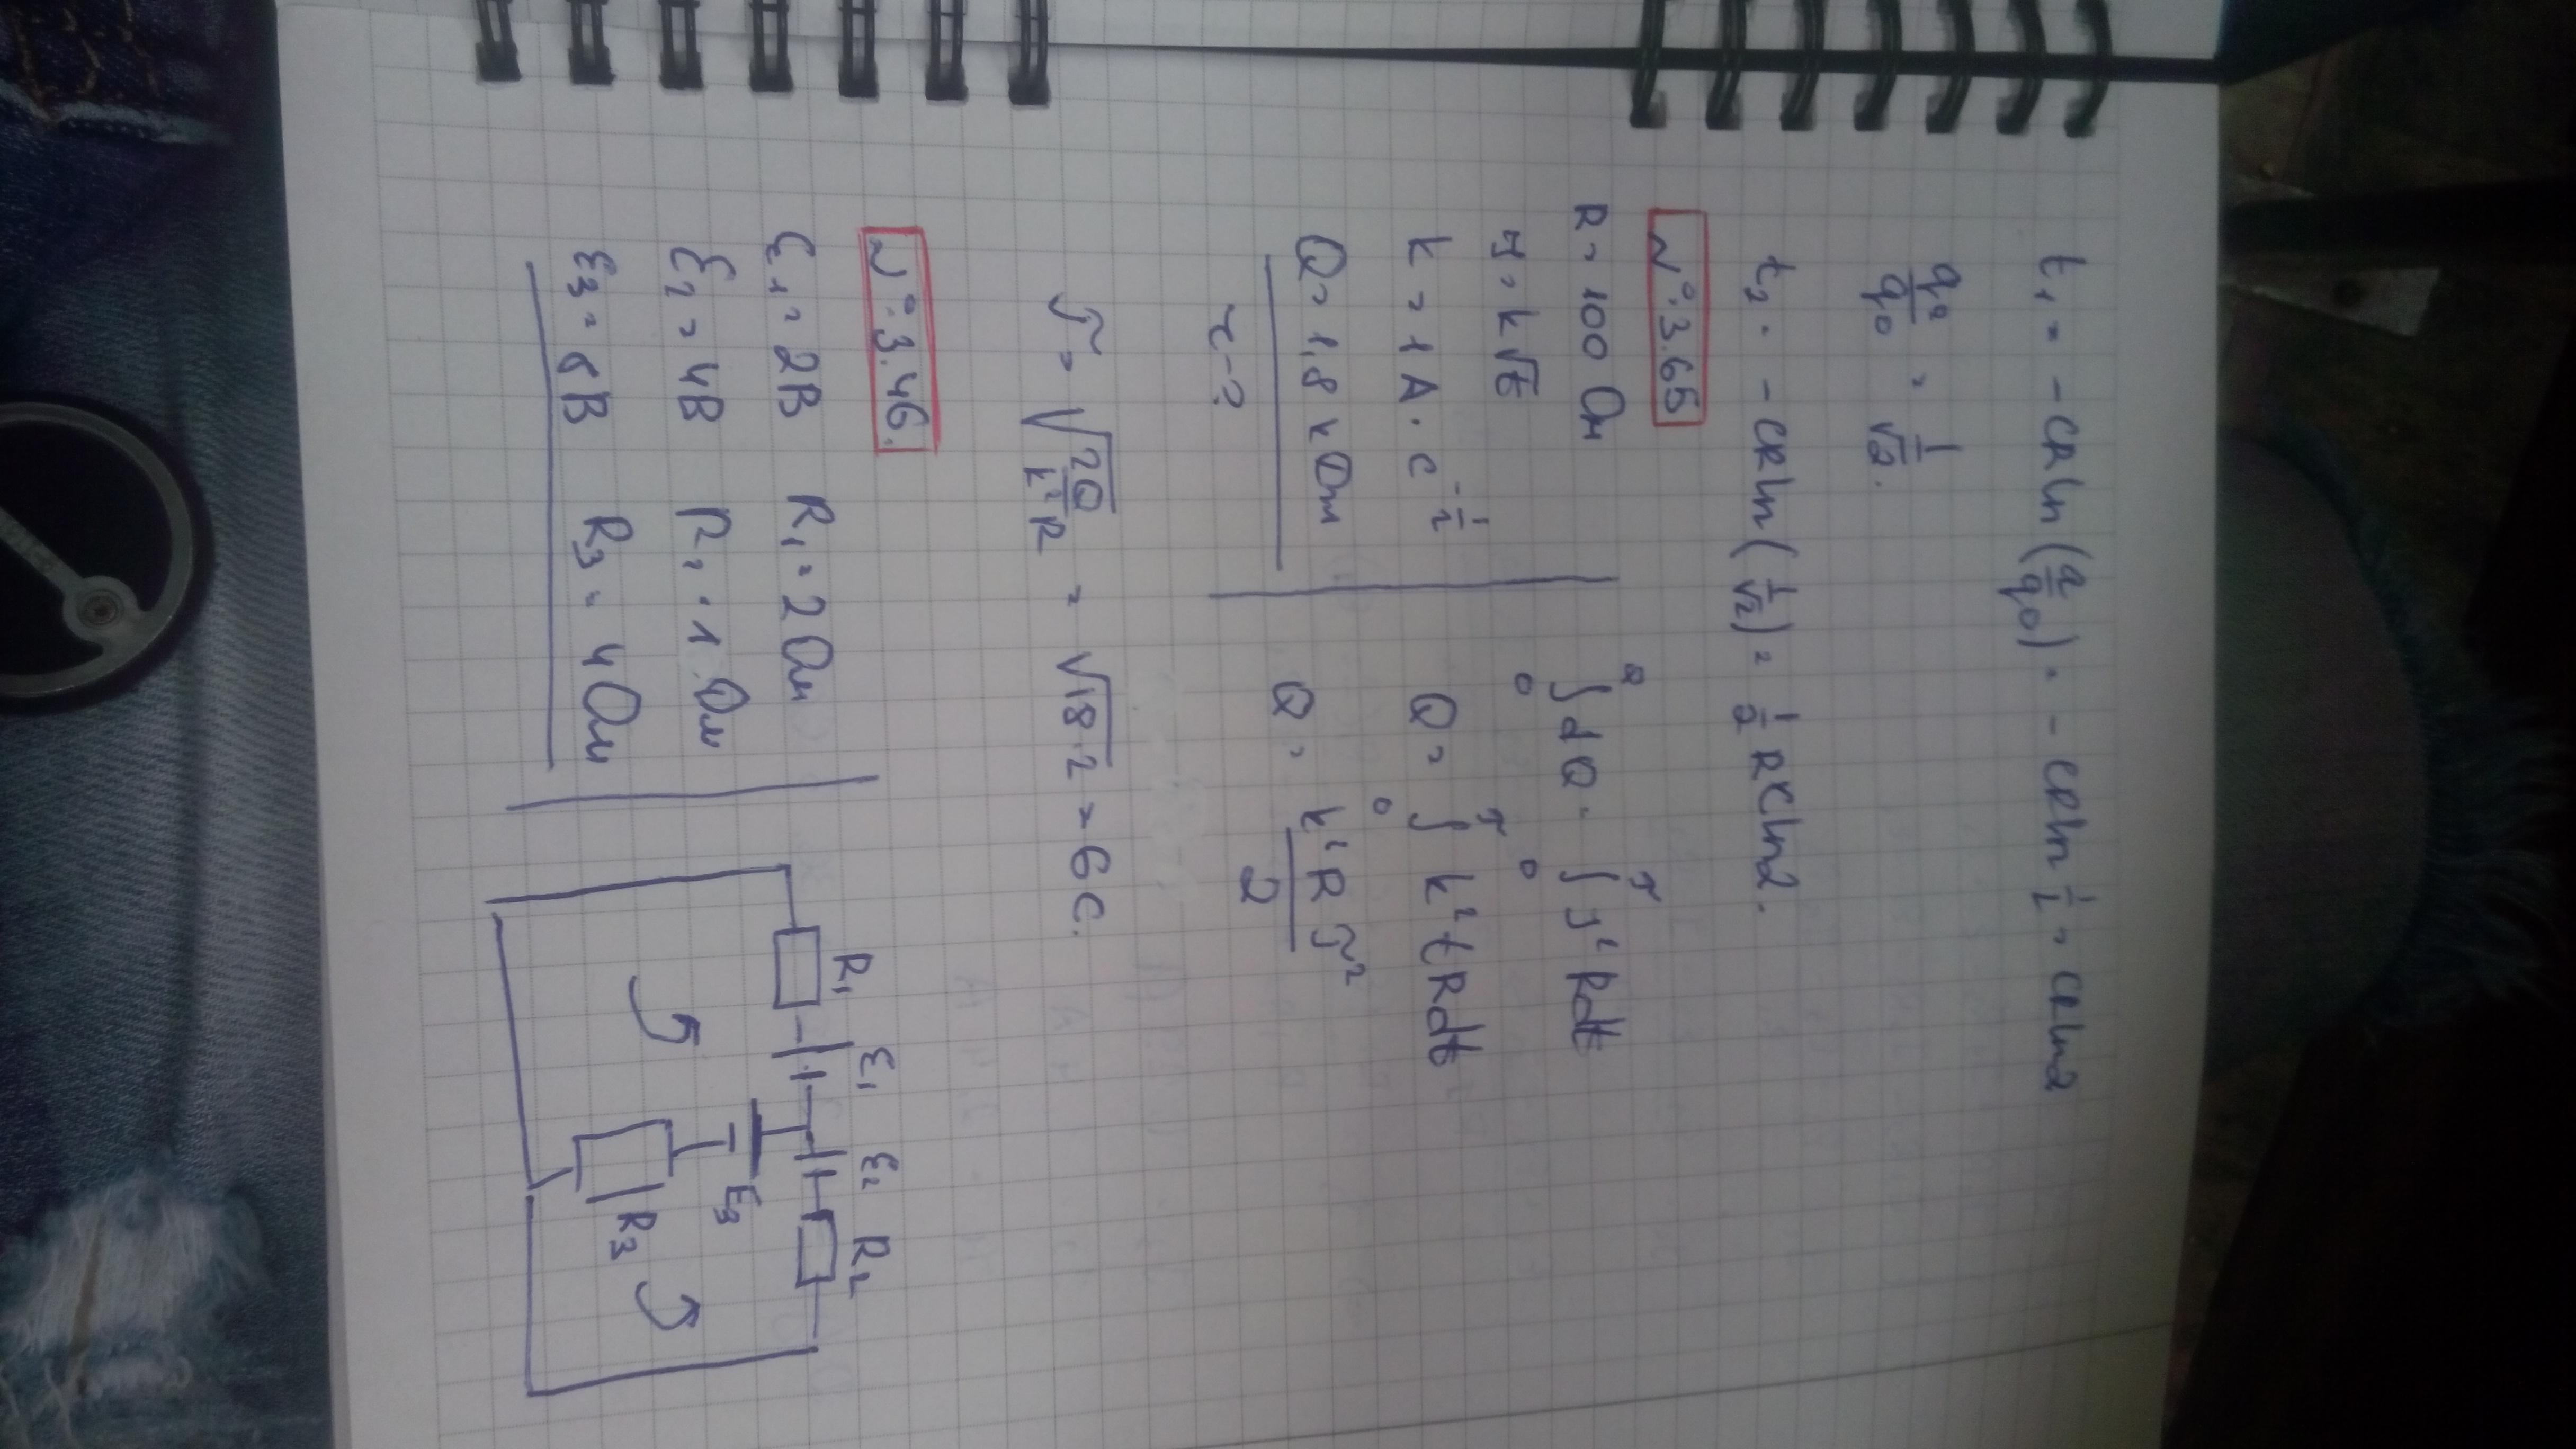 t₁ = -CR ln(q/q₀) = -CR ln 1/2 = CR ln2
q²/q₀ = 1/√2.
t₂ = -CR ln(1/√2) = 1/2 RC ln2.
№ 3.65
R = 100 Ом
J = k√t
k = 1 А · с^(-1/2)
Q = 1,8 кОм
τ - ?
∫₀^Q dQ = ∫₀^τ J² R dt
Q = ∫₀^τ k² t R dt
Q = k² R τ² / 2
τ = √(2Q / k²R) = √(18·2) = 6 с.
№ 3.46.
ε₁ = 2В R₁ = 2 Ом
ε₂ = 4В R₂ = 1 Ом
ε₃ = 6В R₃ = 4 Ом
R₁ ε₁ ε₂ R₂
E₃
R₃